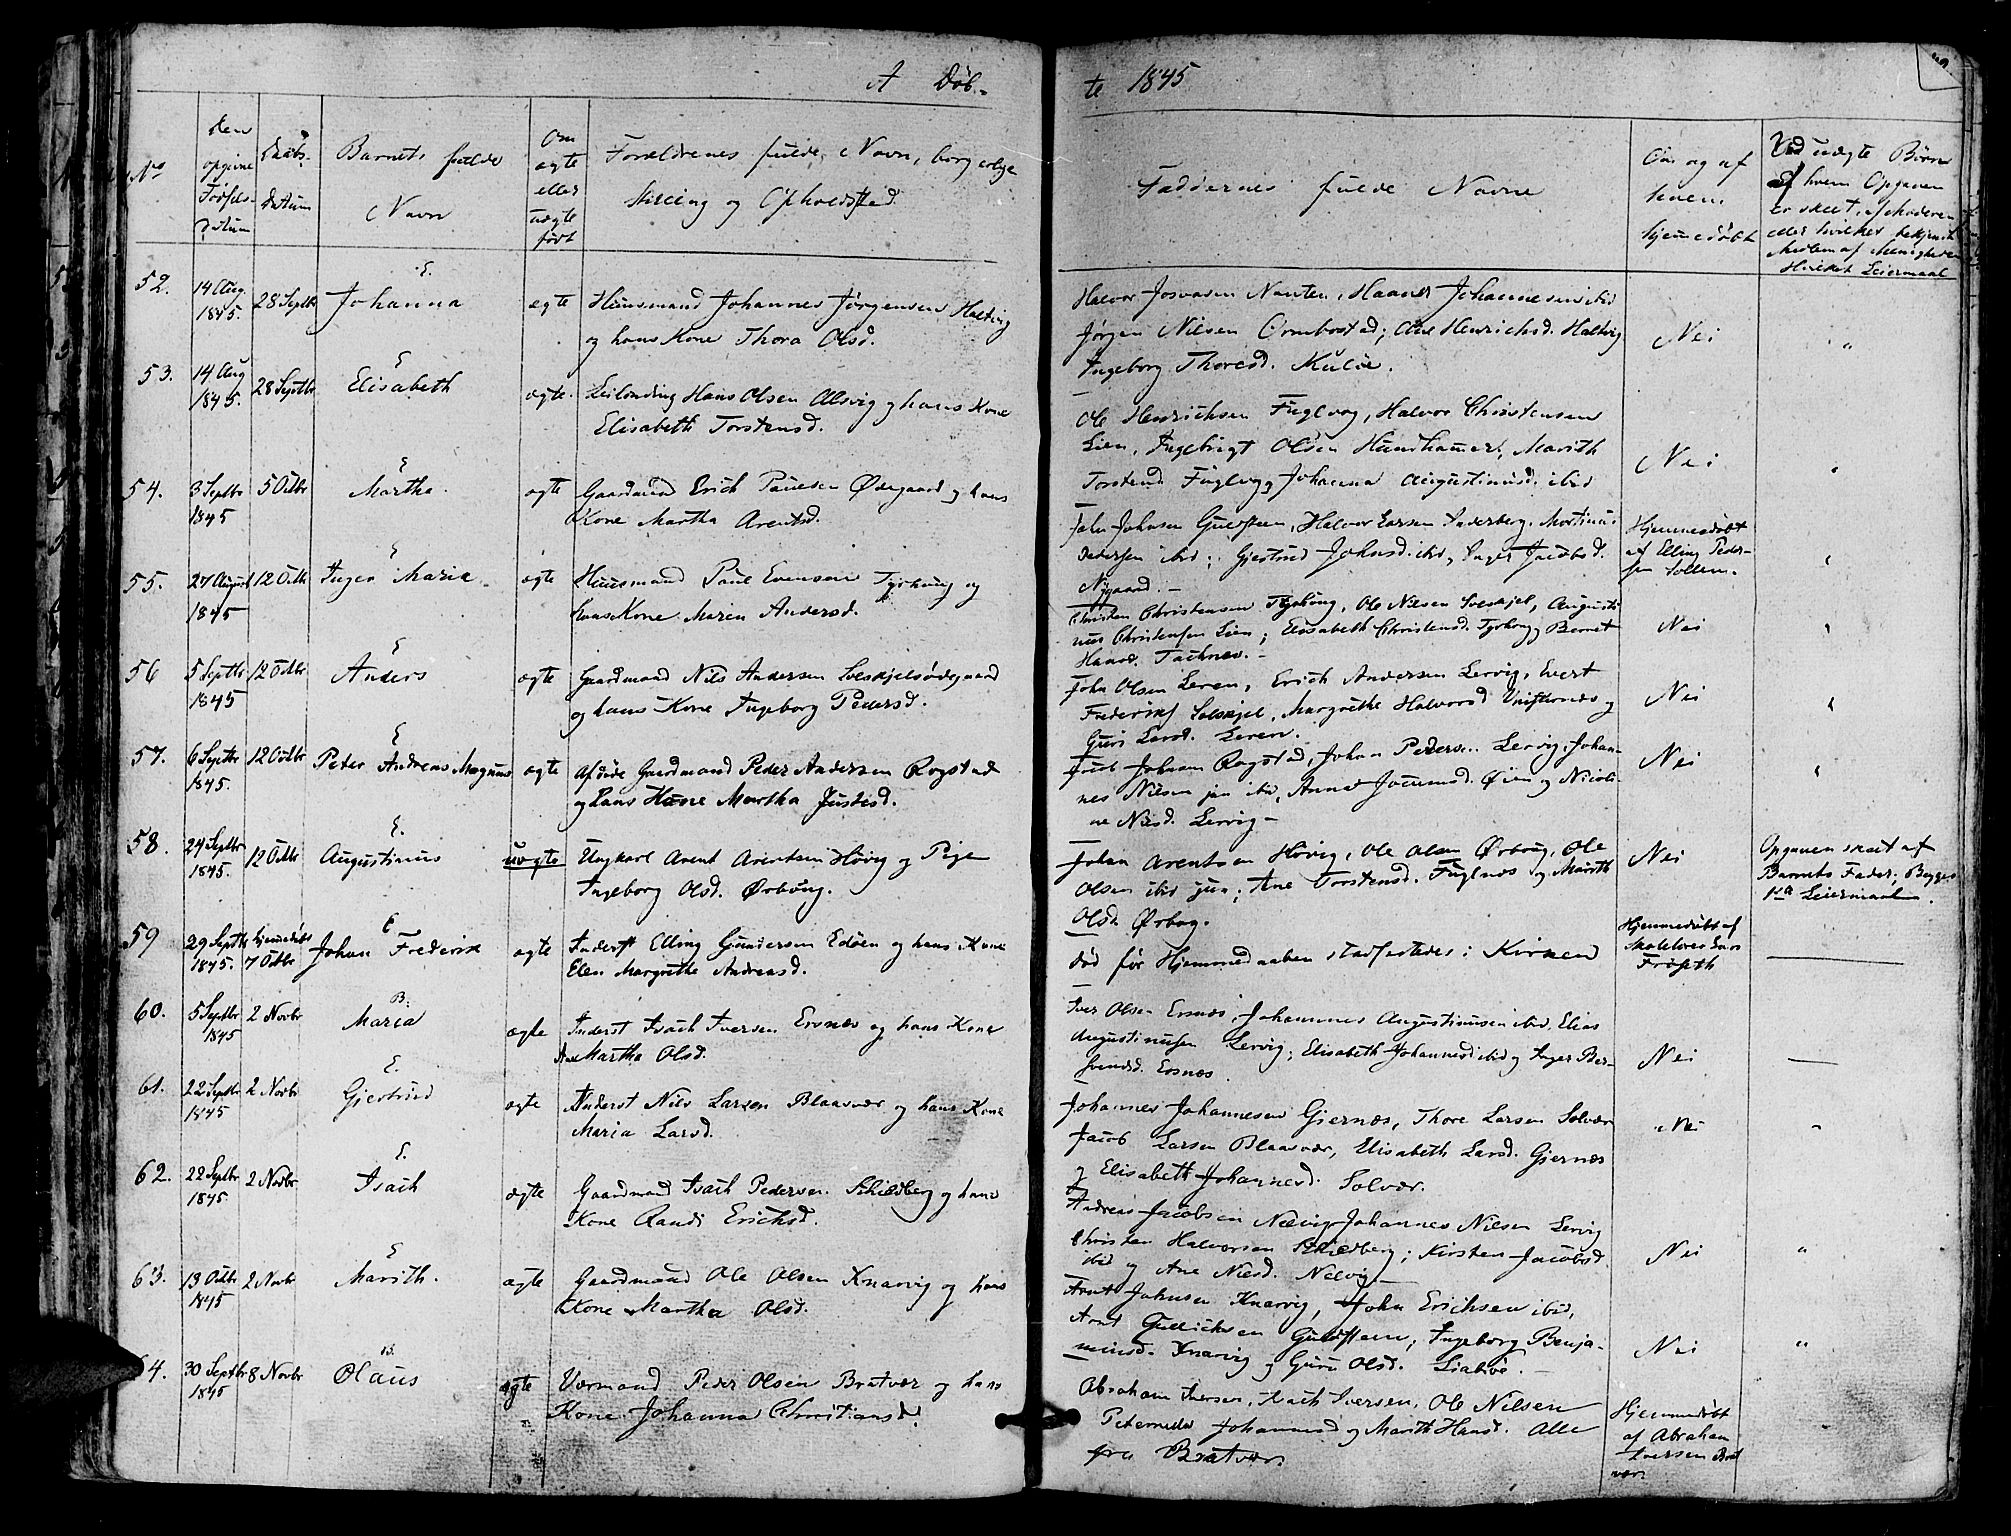 A Døb-
No
Den opgivne Fødsels-Datum
Daabs-Datum
Barnets fulde Navn
Om ægte eller uægte født
Forældrenes fulde Navn, borgerlige Stilling og Opholdsted
52.
14 Aug. 1845.
28 Septbr
E.
Johanna
ægte
Huusmand Johannes Jørgensen
og hans Kone Thora Olsd.
53.
14 Aug 1845.
28 Septbr
E
Elisabeth
ægte.
Leilænding Hans Olsen Alsvig og hans Kone
Elisabeth Torstensd.
54.
3 Septbr 1845
5 Octbr
E
Martha.
ægte
Gaardmand Erich Paulsen Ødegaard og hans
Kone Martha Arentsd.
55.
27 August 1845
12 Octb
E
Inger Marie
ægte
Huusmand Paul Evensen Tyrhaug og
hans Kone Maren Andersd.
56
5 Septbr 1845
12 Octbr
E
Anders
ægte
Gaardmand Nils Andersen Solskjelsødegaard
og hans Kone Ingeborg Pedersd.
57.
6 Septbr 1845.
12 Octbr
E
Peter Andreas Magnus
ægte
Afdøde Gaardmand Peder Andersen Rogstad
og hans Kone Martha Justesd.
58.
24 Septbr 1845.
12 Octbr
E.
Augustinus
uægte
Ungkarl Arent Arentsen Høvig og Pige
Ingeborg Olsd. Ørboug.
59
29 Septbr 1845.
hjemmedøbt 7 Octbr
E
Johan Frederik
ægte
Inderst Elling Gundersen Edøen og hans Kone
Elen Margrethe Andreasd.
60.
5 Septbr 1845
2 Novbr
B.
Maria
ægte
Inderst Isach Iversen Ersnæs og hans Kone
Ane Martha Olsd.
61.
22 Septbr 1845
2 Novbr
E.
Gjertrud
ægte
Inderst Nils Larsen Blaasvær og hans Kone
Maria Larsd.
62.
22 Septbr 1845.
2 Novbr
E.
Isach
ægte
Gaardmand Isach Pedersen Schieldberg og hans
Kone Randi Erichsd.
63.
13 Octbr 1845
2 Novbr
E
Marith.
ægte
Gaardmand Ole Olsen Knarvig og hans
Kone Martha Olsd.
64.
30 Septbr 1845
8 Novbr
B.
Olaus
ægte
Værmand Peder Olsen Bratvær og hans
Kone Johanna Christiansd.
te 1845
Faddernes fulde Navne
Om og af hvem hjemmedøbt
Ved uægte Børn af hvem Opgaven er skeet, af Moderen eller hvilket bekjendt Medlem af Menigheden
Hvilket Leiermaal
Halvor Josvasen Nonten, Johannesen ibid
Jørgen Nilsen Ormbostad; Ane Henrichsd.
Ingeborg Thoresd. Kuløe.
Nei
"
Ole Henrichsen Fuglvog, Halvor Christensen
Lien, Ingebrigt Olsen Hundhammer, Marith
Torstensd. Fuglvog Johanna Augustinusd. ibid
Nei
"
John Johnsen Guldsteen, Halvor Larsen
Pedersen ibid; Gjertrud Johnsd. ibid, Inger Jacobsd.
Nygaard.
Hjemmedøbt
af Elling Peder-
sen Sollem.
"
Christen Christensen Tyrhoug, Ole Nilsen Solskjel, Augusti
nus Christensen Lien; Elisabeth Christensd. Tyrhoug Beret
Hansd.
Nei
"
John Olsen Leren, Erich Andersen Lervig, Evert
Frederiks Solskjel, Margrethe Halvorsd. og
Guri Larsd. Leren.
Nei
"
Just Johan Rogstad, Johan Pedersen Lervig, Johan-
nes Nilsen jun ibid, Anne Øien og Nicoli-
ne Nilsd. Lervig
Nei
"
Johan Arentsen Høvig, Ole Olsen Ørboug, Ole
Olsen ibid jun; Ane Torstensd. Fuglnæs og Marith
Olsd. Ørbog.
Nei
Opgaven skeet af
Barnets Fader; Begges
1te Leiermaal.
død før Hjemmedaaben stadfæstedes i Kirken
Hjemmedøbt af
Skolelærer Lars
Frøseth
Iver Olsen Ersnæs, Johannes Augustinusen ibid, Elias
Augustinusen Lervig; Elisabeth Johannesd. ibid og Inger
Ersnæs.
Nei
Johannes Johannesen Gjernæs, Thore Larsen Solvær
Jacob Larsen Blaasvær, Elisabeth Larsd. Gjernæs
og Elisabeth Johannesd. Solvær.
Nei
"
Andreas Jacobsen Nelvig Johannes Nilsen Lervig
Christen Halvorsen Schieldberg; Kirsten Jacobsd.
ibid og Ane Nilsd. Nelvig
Nei
"
Arnt Johnsen Knarvig, John Erichsen ibid,
Arnt Gullichsen Guldsteen; Ingeborg Benja-
minsd. Knarvig og Guru Olsd.
Nei
"
Abraham Iversen, Isach Iversen, Ole Nilsen
Peternelle Johannesd. og Marith Hansd. Alle
fra Bratvær.
Hjemmedøbt
af Abraham
Iversen Brat
vær.